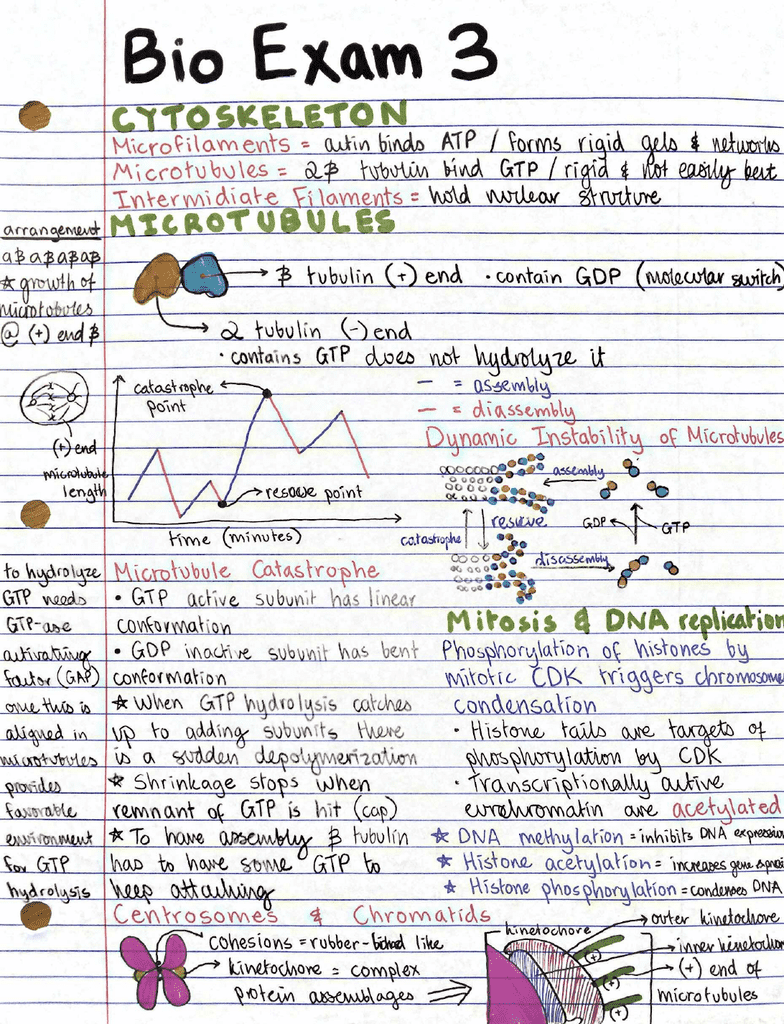 Bio Exam 3
CYTOSKELETON
Microfilaments = actin binds ATP / forms rigid gels & networks
Microtubules = αβ tubulin bind GTP / rigid & not easily bent
Intermidiate Filaments = hold nuclear structure
MICROTUBULES
arrangement
αβ αβ αβ αβ
★ growth of
microtobules
@ (+) end β
→ β tubulin (+) end • contain GDP (molecular switch)
→ α tubulin (-) end
• contains GTP does not hydrolyze it
(+) end
microtubule
length
catastrophe
point
→ rescue point
time (minutes)
— = assembly
— = diassembly
Dynamic Instability of Microtubules
assembly
rescue
catastrophe
GDP
GTP
disassembly
to hydrolyze
GTP needs
GTP-ase
activating
factor (GAP)
once this is
aligned in
microtubules
provides
favorable
environment
for GTP
hydrolysis
Microtubule Catastrophe
• GTP active subunit has linear
conformation
• GDP inactive subunit has bent
conformation
★ When GTP hydrolysis catches
up to adding subunits there
is a sudden depolymerization
★ Shrinkage stops when
remnant of GTP is hit (cap)
★ To have assembly β tubulin
has to have some GTP to
keep attaching
Mitosis & DNA replication
Phosphorylation of histones by
mitotic CDK triggers chromosome
condensation
• Histone tails are targets of
phosphorylation by CDK
• Transcriptionally active
euchromatin are acetylated
★ DNA methylation = inhibits DNA expression
★ Histone acetylation = increases gene
★ Histone phosphorylation = condenses DNA
Centrosomes & Chromatids
→ cohesions = rubber-band like
→ kinetochore = complex
protein assemblages
kinetochore
→ outer kinetochore
→ inner kinetochore
→ (+) end of
microtubules
(+)
(+)
(+)